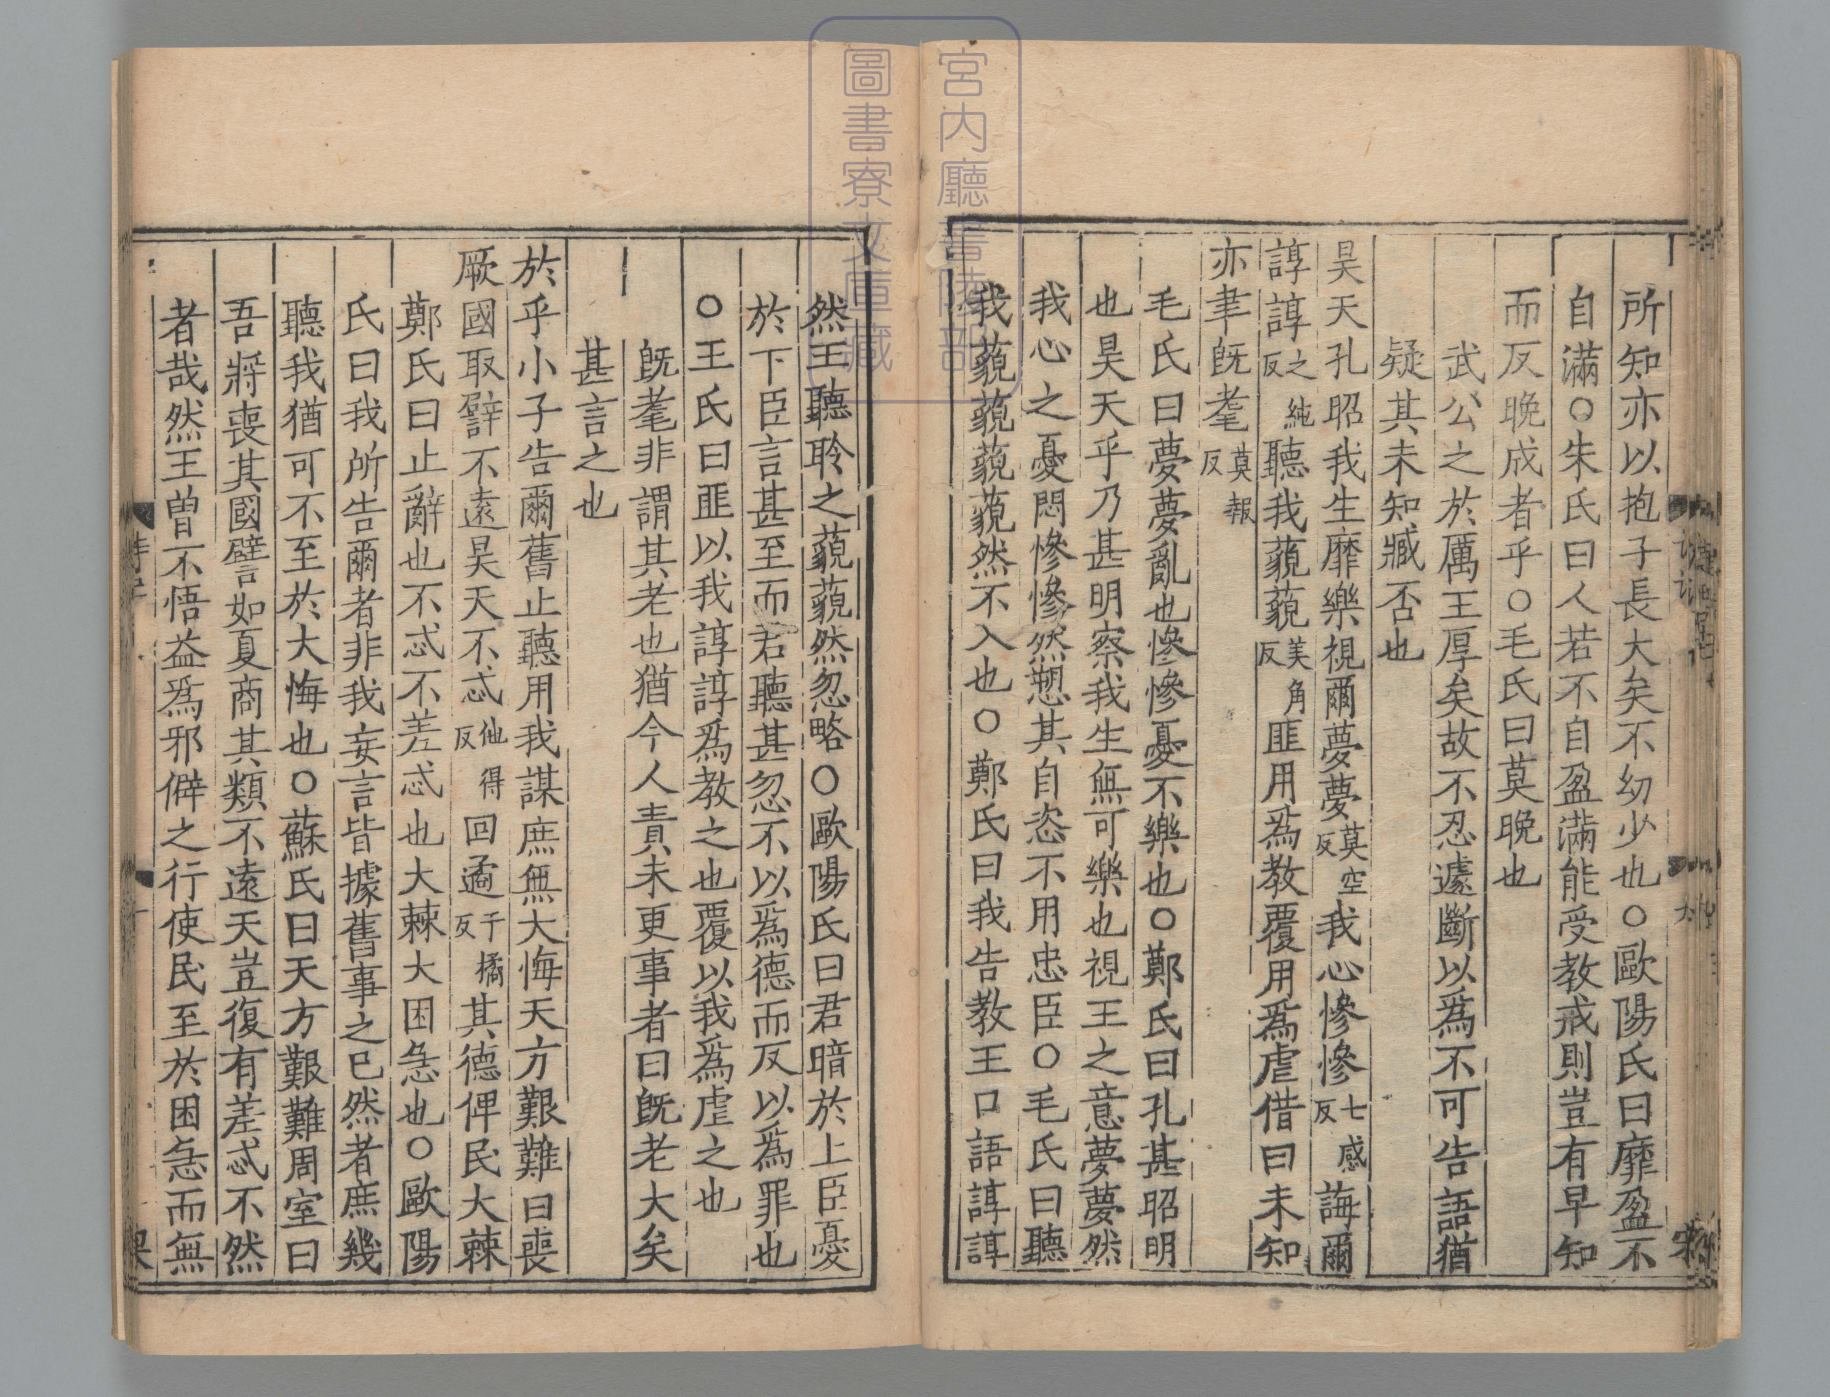 所知亦以抱子長大矣不幼少也○歐陽氏曰靡盈不
自滿○朱氏曰人若不自盈滿能受教戒則豈有早知
而反晚成者乎○毛氏曰莫晚也
武公之於厲王厚矣故不忍遽斷以爲不可告語猶
疑其未知臧否也
昊天孔昭我生靡樂視爾夢夢莫空反我心慘慘七感反誨爾
諄諄之純反聽我藐藐美角反匪用爲教覆用爲虐借曰未知
亦聿旣耄莫報反
毛氏曰夢夢亂也慘慘憂不樂也○鄭氏曰孔甚昭明
也昊天乎乃甚明察我生無可樂也視王之意夢夢然
我心之憂悶慘慘然愬其自恣不用忠臣○毛氏曰聽
我藐藐藐藐然不入也○鄭氏曰我告教王口語諄諄
然王聽聆之藐藐然忽略○歐陽氏曰君暗於上臣憂
於下臣言甚至而君聽甚忽不以爲德而反以爲罪也
○王氏曰匪以我諄諄爲教之也覆以我爲虐之也
旣耄非謂其老也猶今人責未更事者曰旣老大矣
甚言之也
於乎小子告爾舊止聽用我謀庶無大悔天方艱難曰喪
厥國取譬不遠昊天不忒他得反回遹于橘反其德俾民大棘
鄭氏曰止辭也不忒不差忒也大棘大困急也○歐陽
氏曰我所告爾者非我妄言皆據舊事之已然者庶幾
聽我猶可不至於大悔也○蘇氏曰天方艱難周室曰
吾將喪其國譬如夏商其類不遠天豈復有差忒不然
者哉然王曾不悟益爲邪僻之行使民至於困急而無
宮内廳書陵部
圖書寮文庫藏